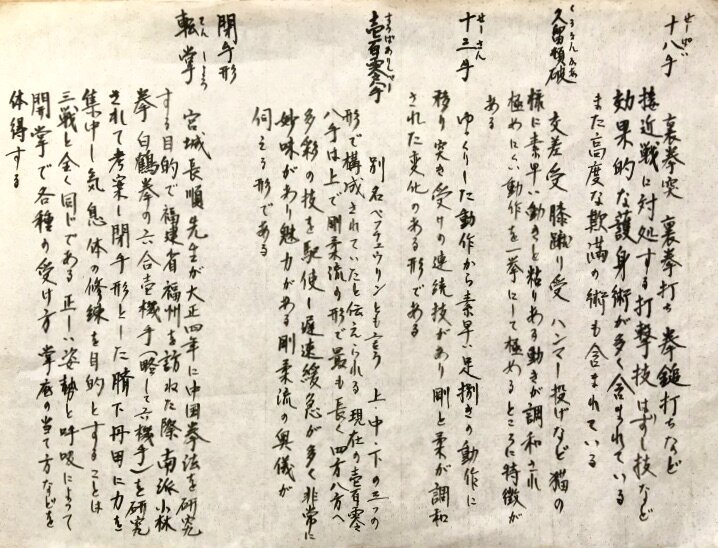 せーぱい
十八手
裏拳突 裏拳打ち 拳鎚打ちなど
接近戦に対処する打撃技 はずし技など
効果的な護身術が多く含まれている
また高度な欺瞞の術も含まれている
くるるんふぁあ
久留頓破
交差受 膝蹴り受 ハンマー投げなど 猫の
様に素早い動きと粘りある動きが調和され
極めにくい動作を一挙にして極めるところに特徴が
ある
せーさん
十三手
ゆっくりした動作から素早い足捌きの動作に
移り突き受けの連続技があり剛と柔が調和
された変化のある形である
すうぱありんぺー
壱百零八手
別名ペッチュウリンとも言う 上・中・下の三つの
形で構成されていたと伝えられる 現在の壱百零
八手は上で剛柔流の形で最も長く四方八方へ
多彩の技を駆使し遅速緩急が多く非常に
妙味があり魅力がある剛柔流の奥儀が
伺える形である
閉手形
てんしょう
転掌
宮城長順先生が大正四年に中国拳法を研究
する目的で福建省福州を訪ねた際 南派小林
拳 白鶴拳の六合壱機手(略して六機手)を研究
されて考案し閉手形とした臍下丹田に力を
集中し気息体の修練を目的とすることは
三戦と全く同じである 正しい姿勢と呼吸によって
開掌で各種の受け方 掌底の当て方などを
体得する